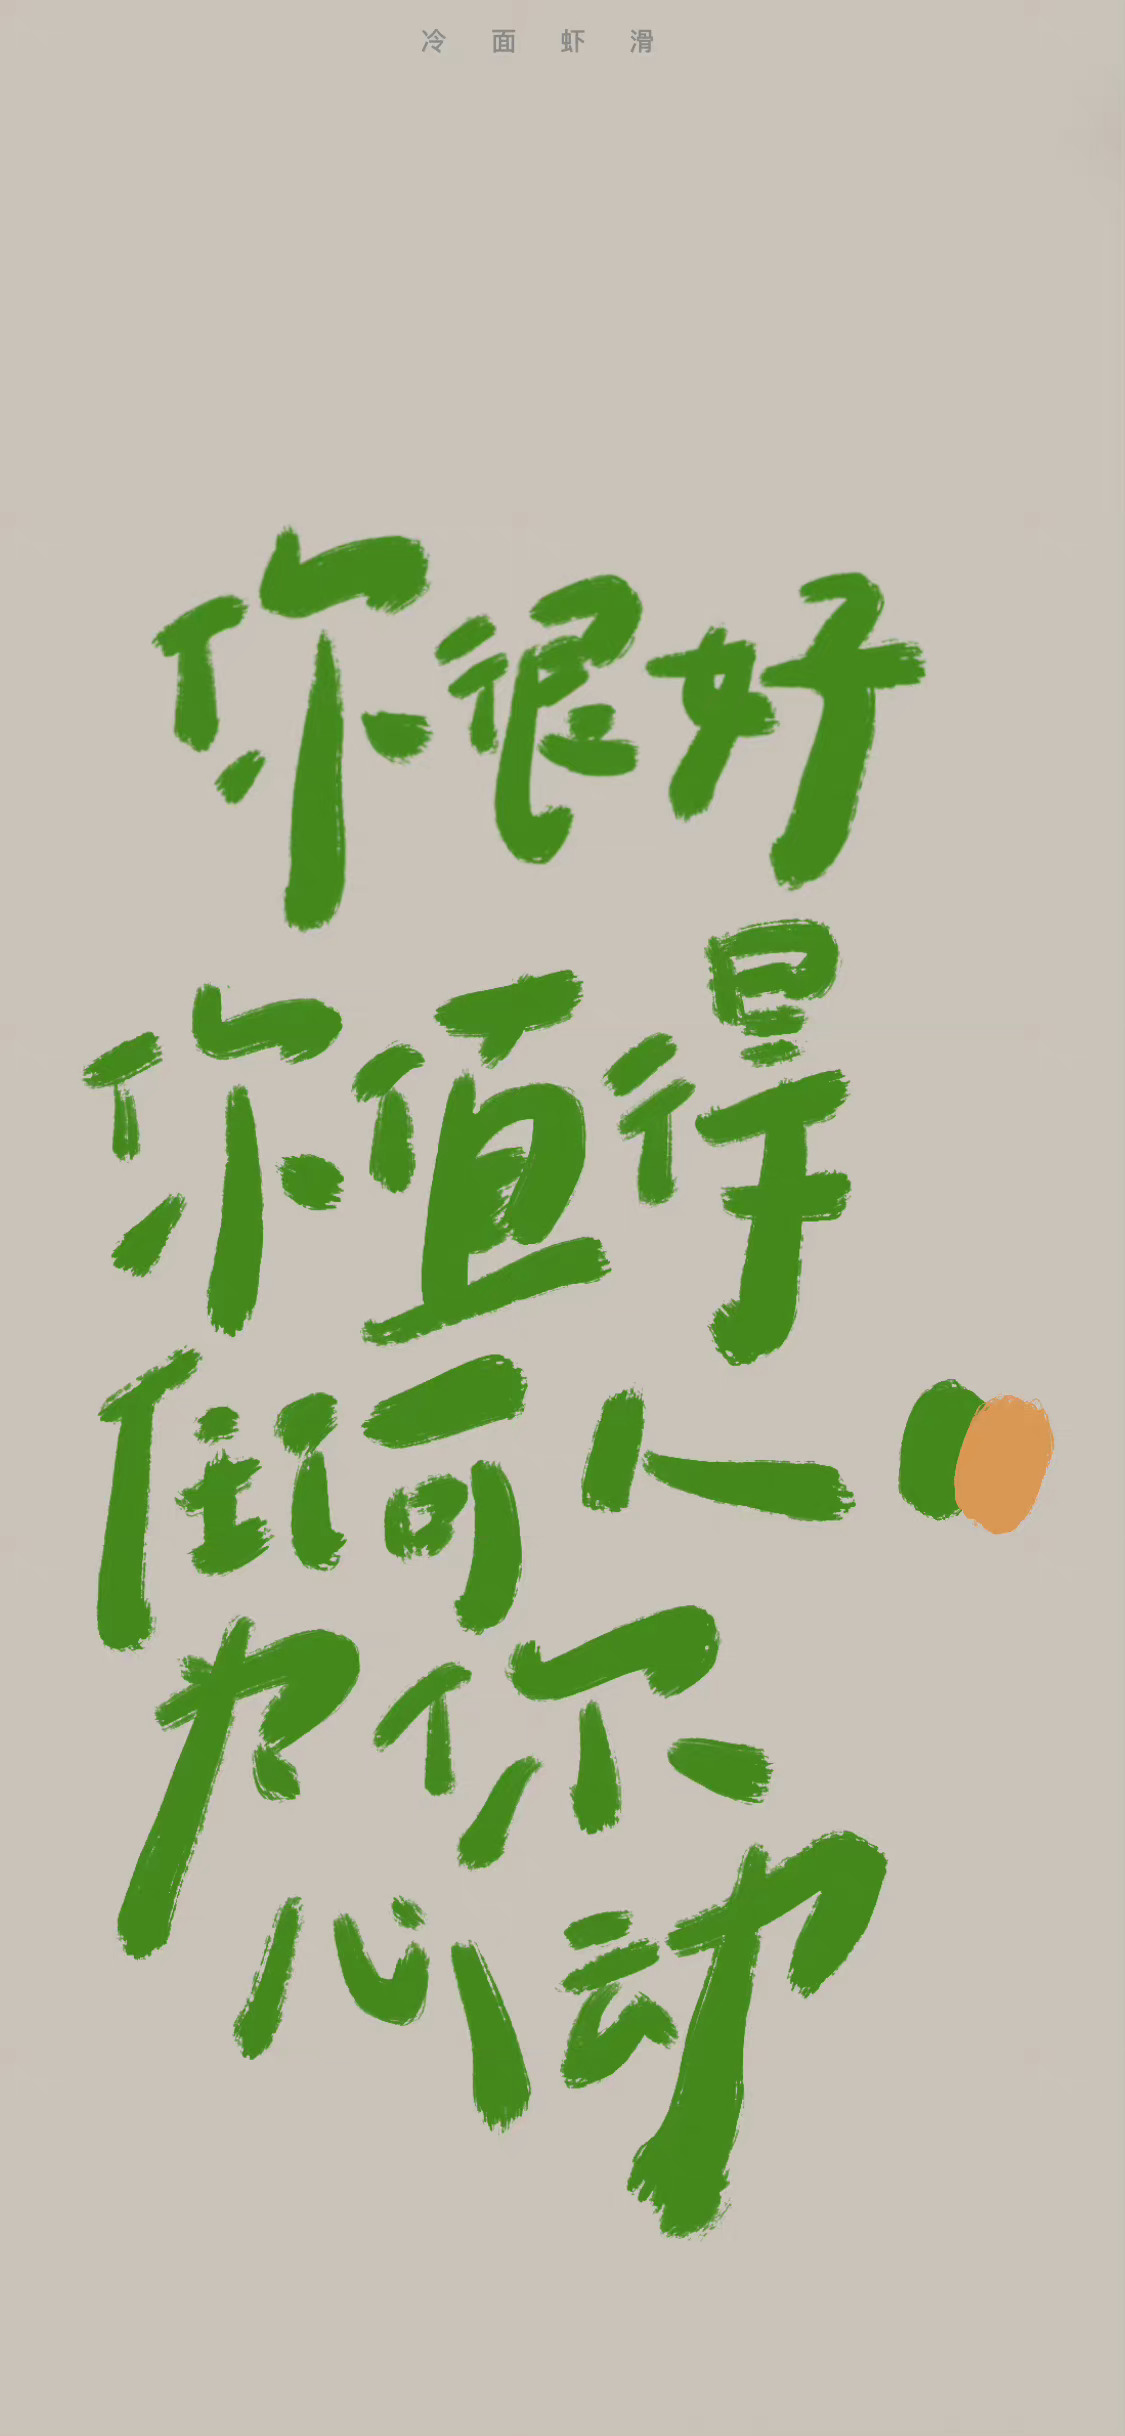 冷面虾滑
你很好
你值得
任何人
为你
心动